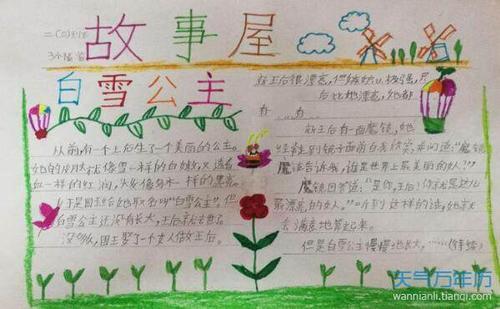 故事屋
白雪公主
从前,有一个王后生了一个美丽的公主。
她的皮肤就像雪一样的白嫩,又透着
血一样的红润,头发像乌木一样的黑亮。
于是国王给她取名叫"白雪公主",但
白雪公主还没有长大,王后就去世了。
没多久,国王娶了一个女人做王后。
新王后很漂亮,但
后比她漂亮,她都
新王后有一面魔镜,她
经常走到镜子面前自我欣赏,并问道:"魔
魔法告诉我,谁是世界上最美丽的女人?"
魔镜回答道:"是你,王后!你就是这儿
最漂亮的女人。"听到这样的话,她就
去满意地笑起来。
但是白雪公主慢慢地长大,……(待续)
天气万年历
wannianli.tianqi.com